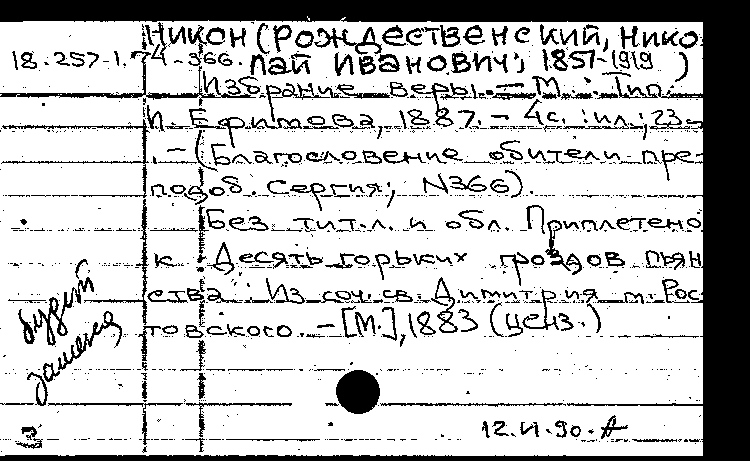 Никон (Рождественский, Нико
18.257-1.74-366. лай Иванович; 1857-1919)
Избрание веры. — М. : Тип.
И. Ефимова, 1887. - 4с. : ил.; 23-
. — (Благословение обители пре-
подоб. Сергия; N366).
Без тит.л. и обл. Приплетено
к : Десять горьких гроздов пьян
ства : Из соч. св. Димитрия м. Рос
товского. — [М.], 1883 (ценз.)
будет
замена
3
12.VI.90.